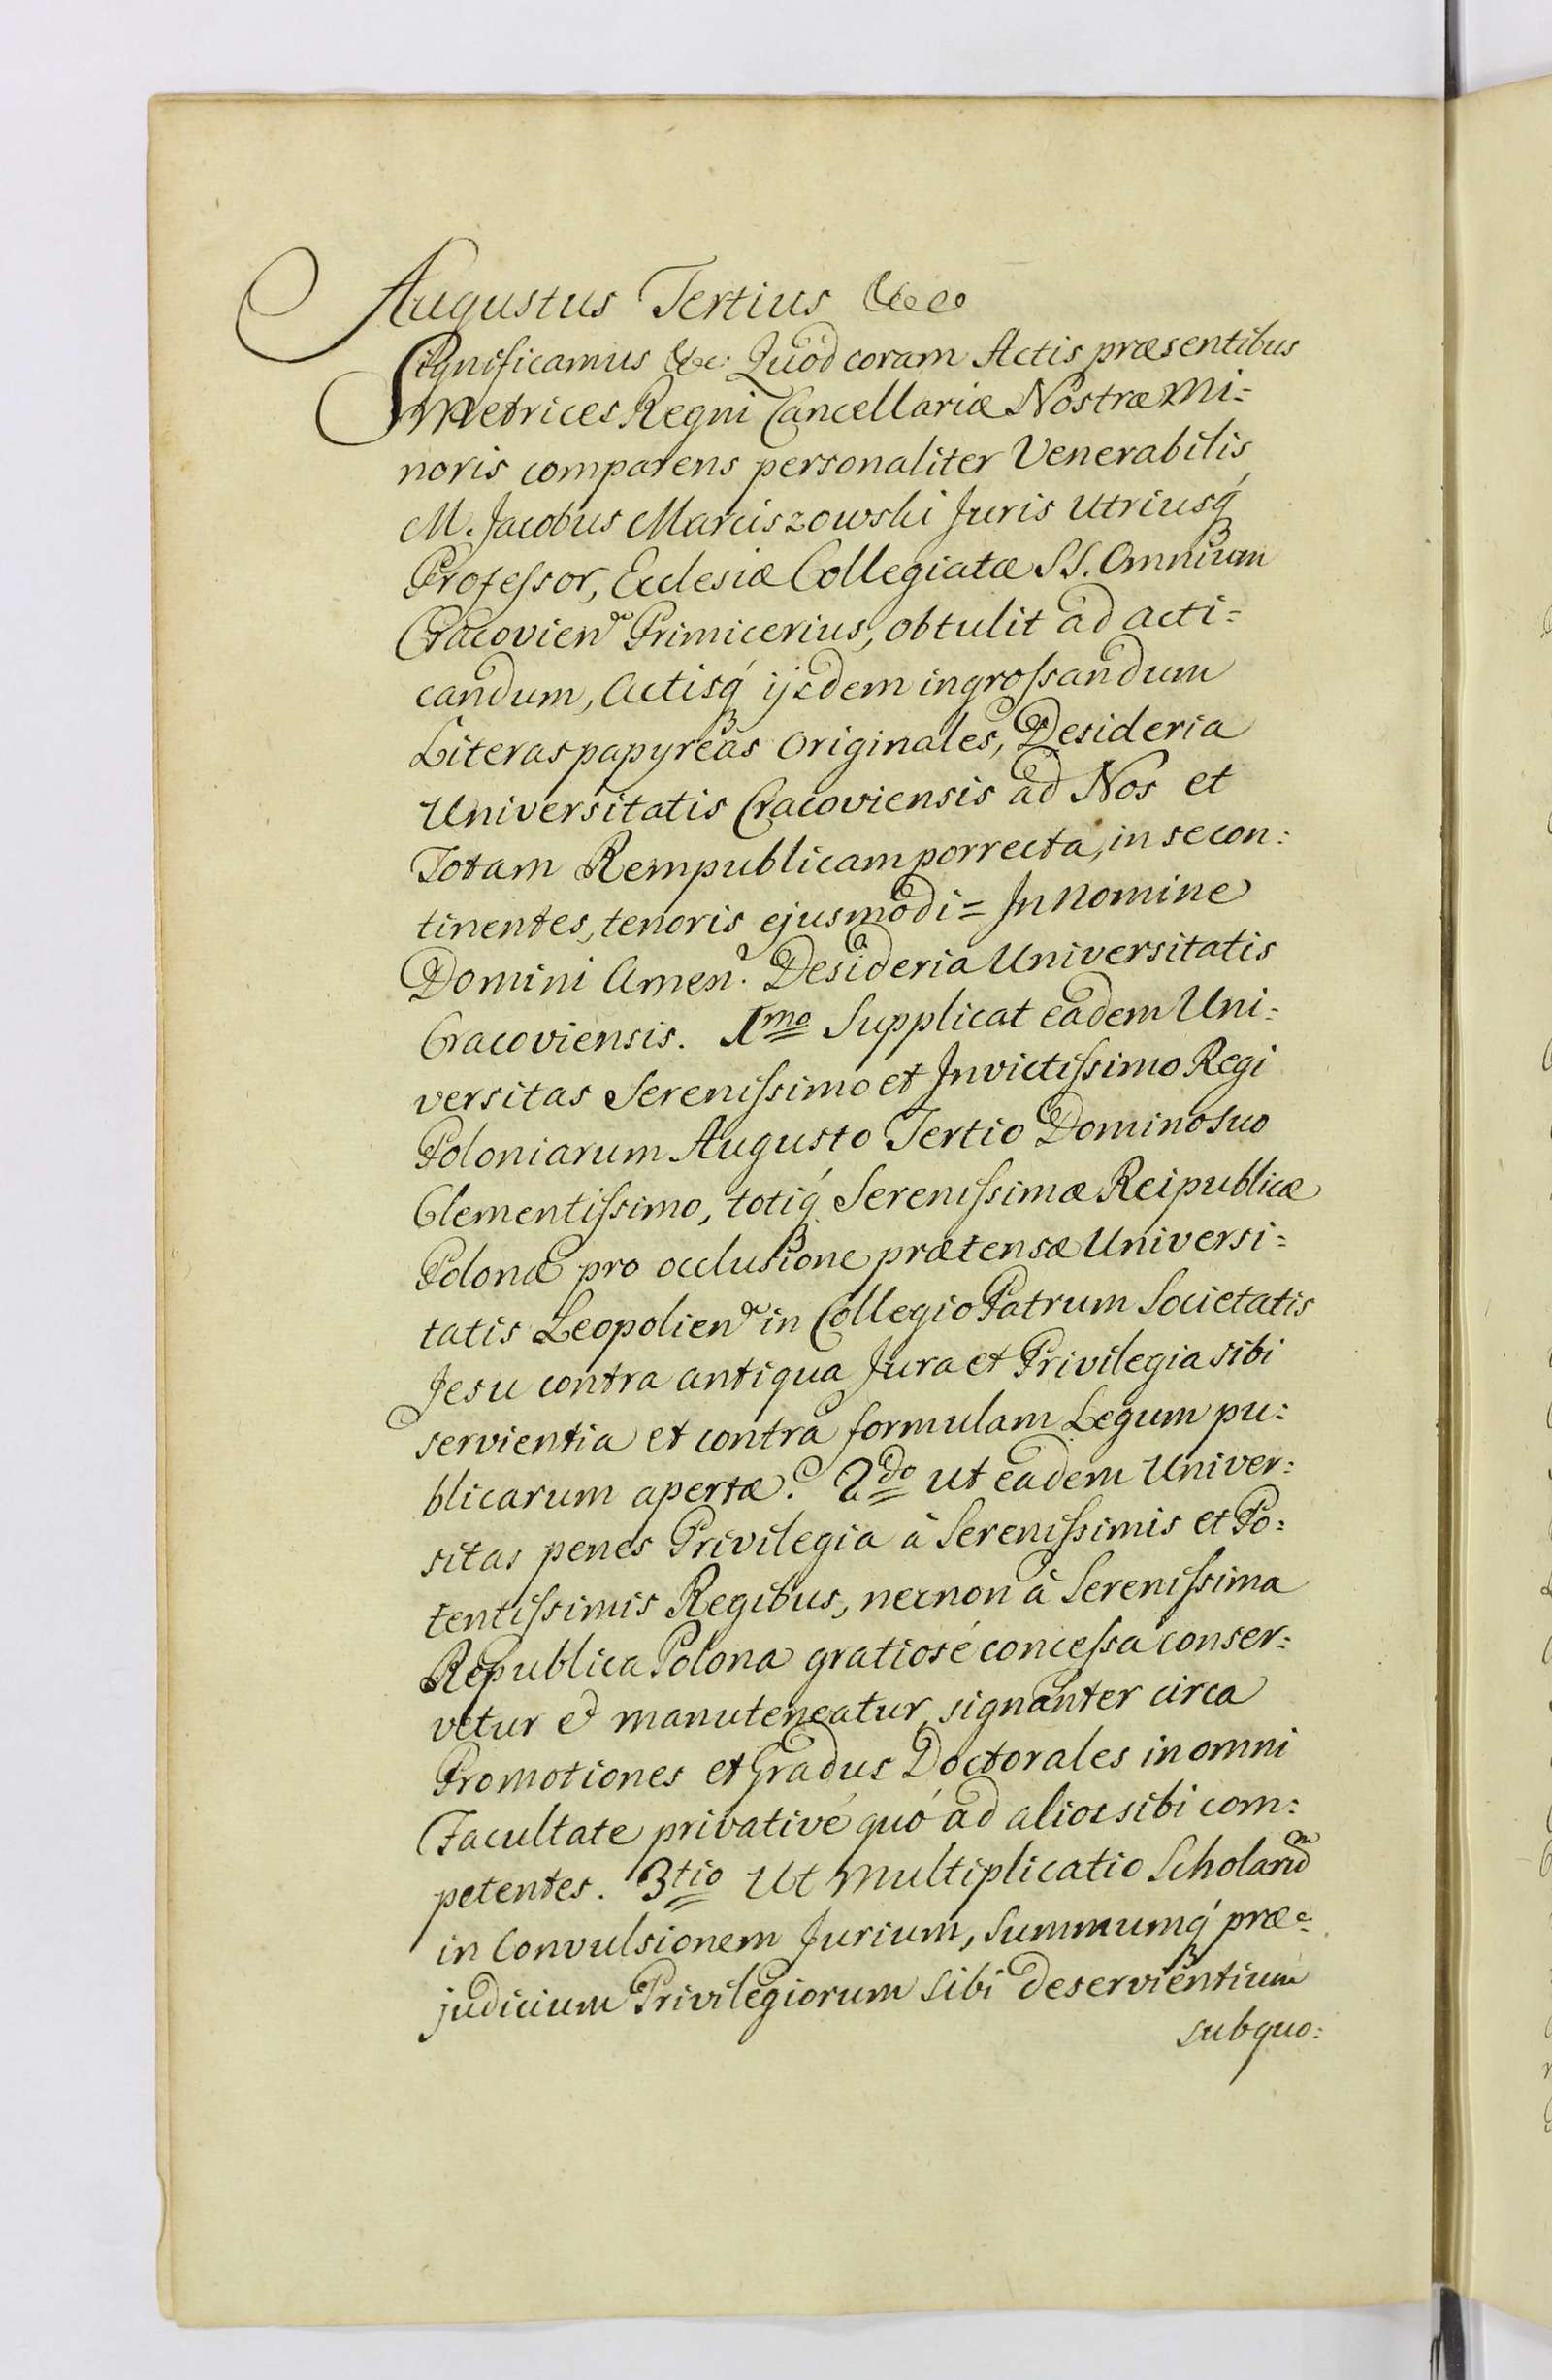 Augustus Tertius &c&c
Significamus &c: Quòd coram Actis præsentibus
Metrices Regni Cancellariæ Nostræ Mi=
noris comparens personaliter Venerabilis
M. Jacobus Marciszowski Juris Utriusq́
Professor, Ecclesiæ Collegiatæ SS. Omnium
Cracovien Primicerius, obtulit ad acti=
candum, Actisq́ ijsdem ingrossandum
Literas papyreas Originales, Desideria
Universitatis Cracoviensis ad Nos et
Totam Rempublicam porrecta, in se con:
tinentes, tenoris ejusmodi = In Nomine
Domini Amen. Desideria Universitatis
Cracoviensis. 1mo Supplicat eadem Uni:
versitas Serenissimo et Invictissimo Regi
Poloniarum Augusto Tertio Domino suo
Clementissimo, totiq́ Serenissimæ Reipublicæ
Polonæ pro occlusione prætensæ Universi=
tatis Leopolien in Collegio Patrum Societatis
Jesu contra antiqua Jura et Privilegia sibi
servientia et contra formulam Legum pu:
blicarum apertæ. 2do ut eadem Univer:
sitas penes Privilegia à Serenissimis et Po:
tentissimis Regibus, necnon à Serenissima
Republica Polona gratiosé concessa conser:
vetur et manuteneatur, signanter circa
Promotiones et Gradus Doctorales in omni
Facultate privativé quó ad alios sibi com:
petentes. 3tio Ut Multiplicatio Scholarum
in Convulsionem Jurium, Summumq́ præ=
judicium Privilegiorum sibi deservientium
subquo: